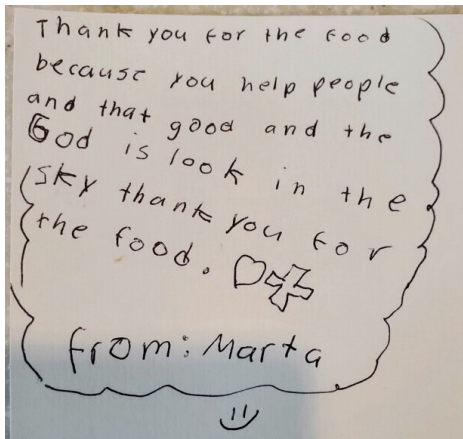 Thank you for the food
because you help people
and that good and the
God is look in the
sky thank you for
the food.
from: Marta